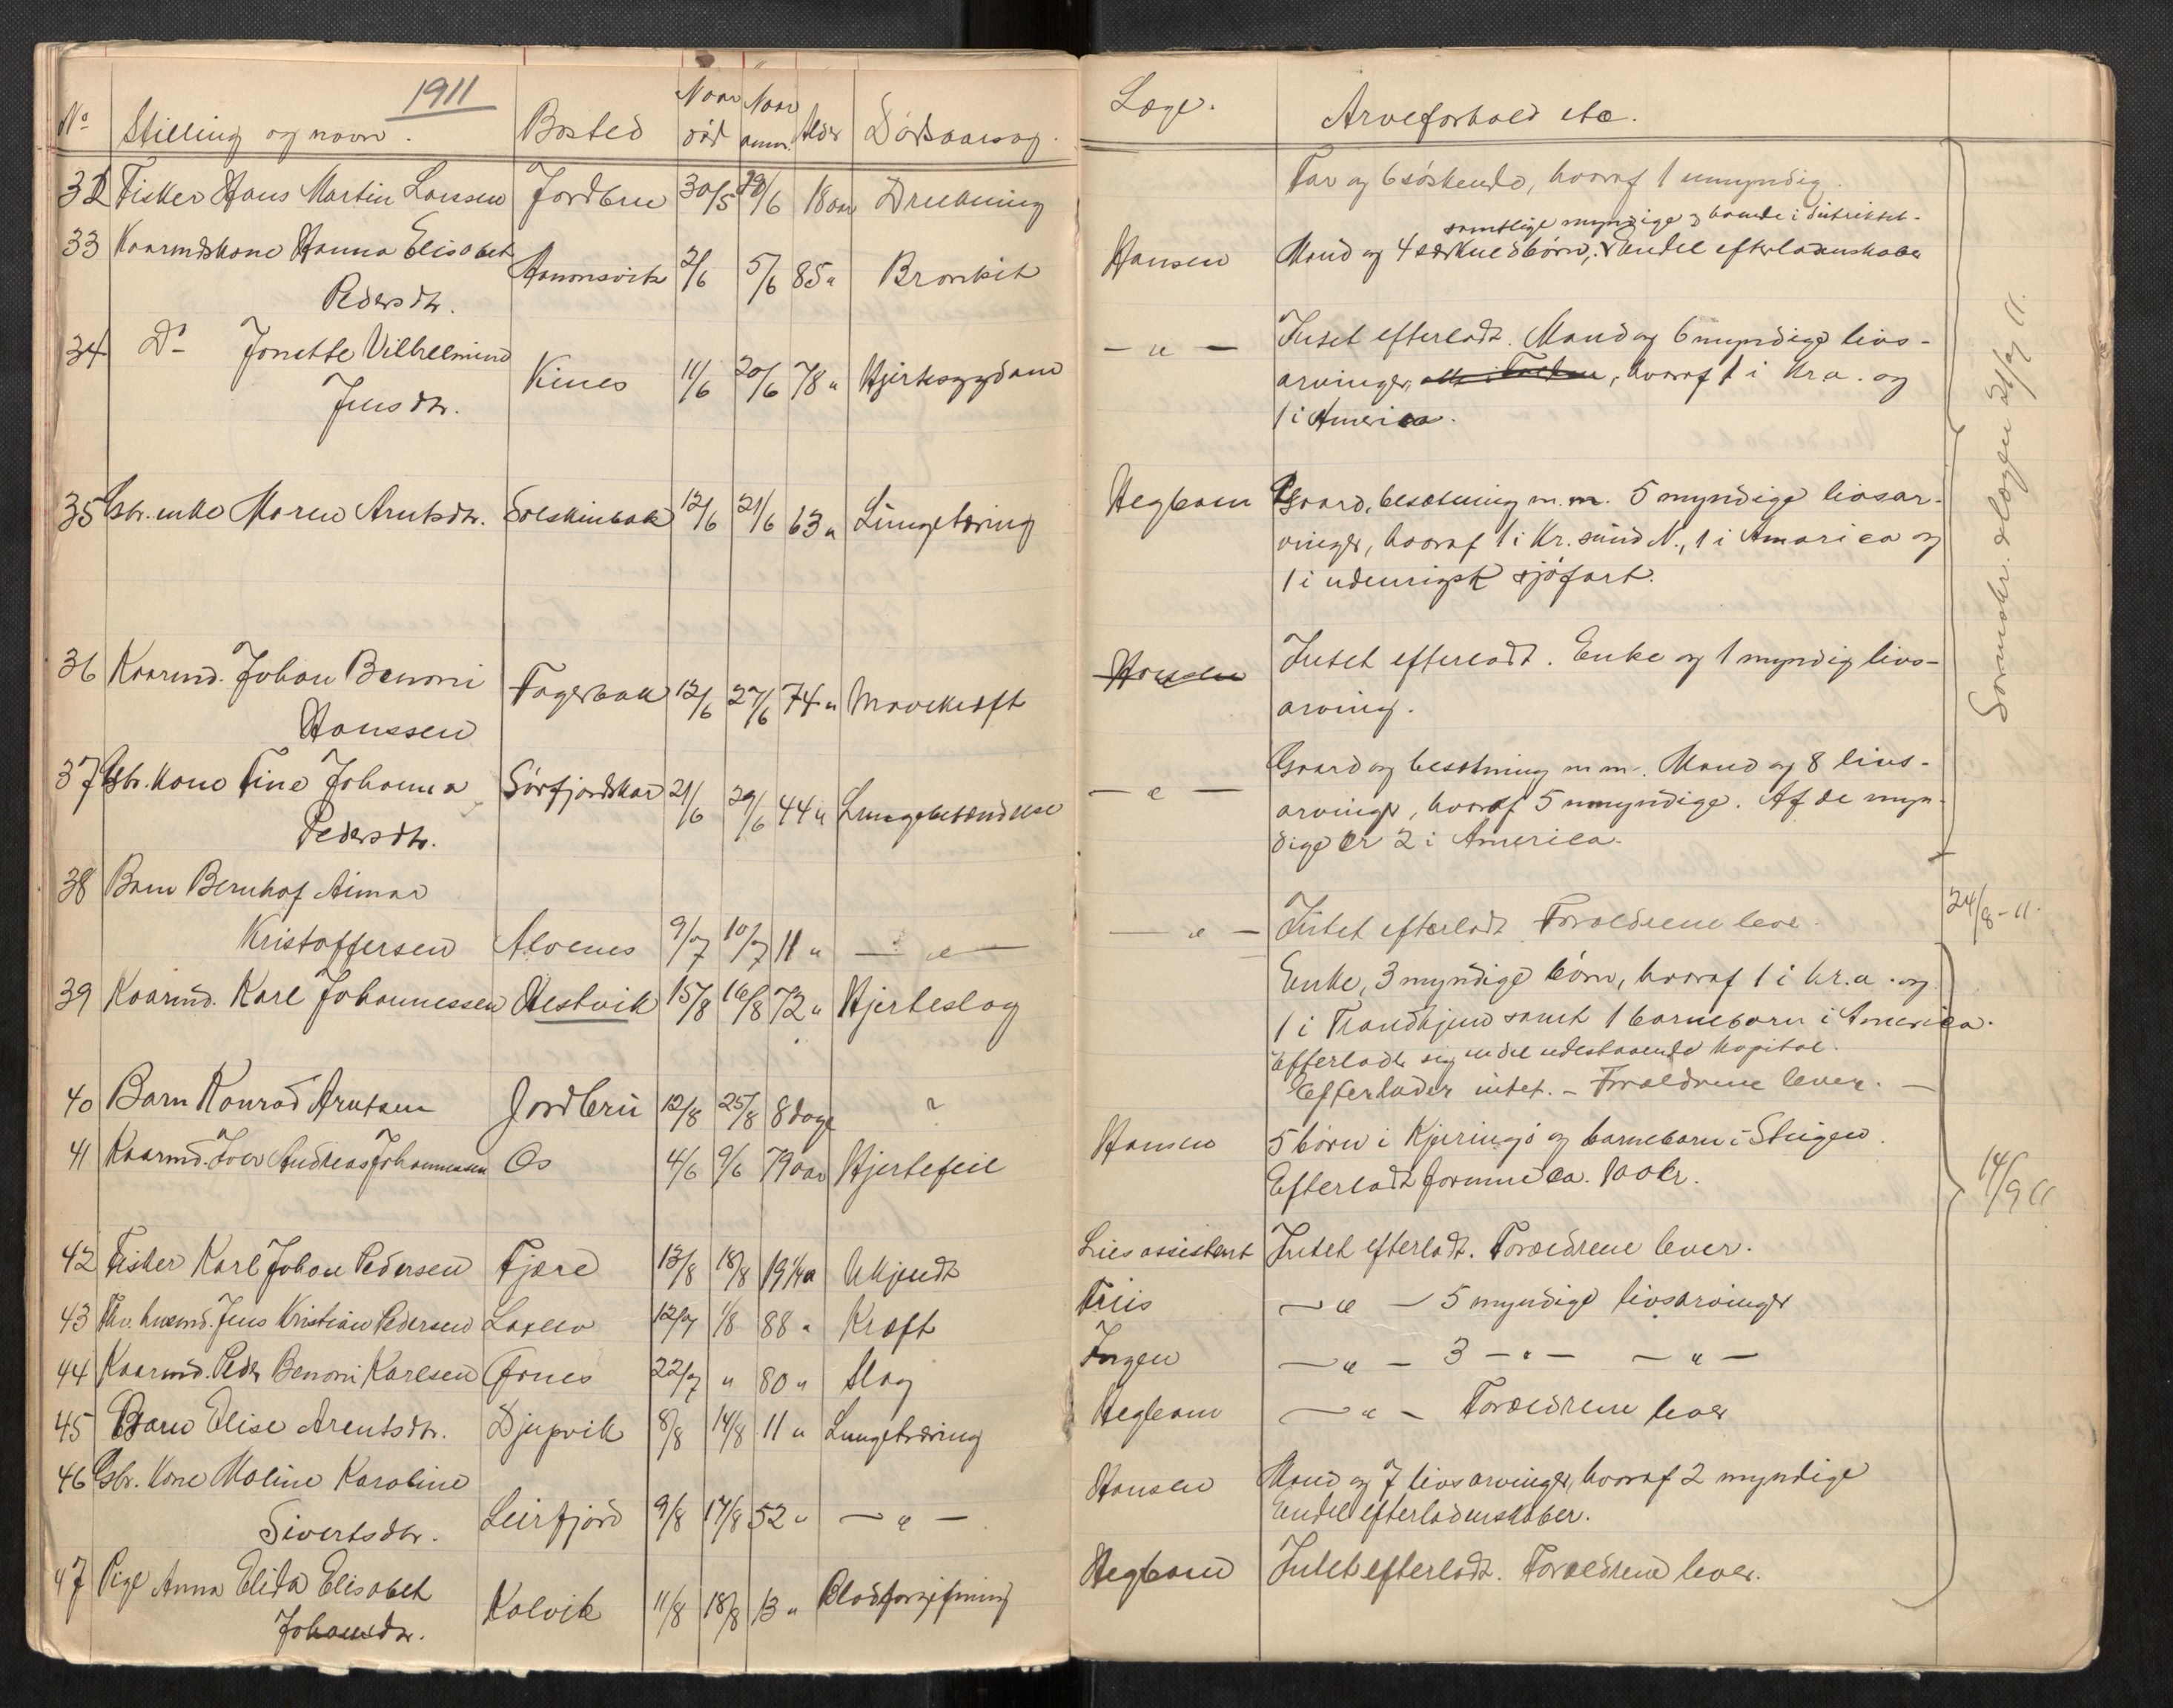 1911
No Stilling og navn. Bosted Naar död Naar anm. Alder Dödsaarsag. Læge. Arveforhold etc.
32 Fisker Hans Martin Larsen Jordbru 30/5 19/6 18 aar Drukning Far og 6 söskende, hvoraf 1 umyndig.
samtlige myndige, boende i distriktet.
33 Kaarmdskone Hanna Elisabet Hansen Mand og 4 særkuldsbörn, Endel efterladenskaber
Pedersdtr. 2/6 5/6 85 " Bronkit
34 Do Jonette Vilhelmine — " — Intet efterladt. Mand og 6 myndige livs-
Jensdtr. Kines 11/6 20/6 78 " Hjertesygdom arvinger, hvoraf 1 i Kr.a. og
1 i America.
35 Gbr. enke Maren Arntsdtr. Solskinbak 12/6 21/6 63 " Lungetæring Hegbom Gaard, besætning m.m. 5 myndige livsar-
vinger, hvoraf 1 i Kr.sund N., 1 i America og
1 i udenrigsk sjöfart.
36 Kaarmd. Johan Benoni Fagerbak 12/6 27/6 74 " Mavekræft Hansen Intet efterladt. Enke og 1 myndig livs-
Hanssen arving.
37 Gbr. kone Tine Johanna Sörfjordskar 21/6 29/6 44 " Lungebetændelse — " — Gaard og besætning m.m. Mand og 8 livs-
Pedersdtr. arvinger, hvoraf 5 umyndige. Af de myn-
dige er 2 i America.
Skr. 21/7 11.
38 Barn Bernhof Aimar
Kristoffersen Alvenes 9/7 10/7 11 " — " — — " — Intet efterladt Forældrene lever. 24/8-11.
39 Kaarmd. Karl Johannessen Hestvik 15/8 16/8 72 " Hjerteslag Enke, 3 myndige börn, hvoraf 1 i Kr.a. og
1 i Trondhjem samt 1 barnebarn i America.
Efterladt sig endel udestaaende kapital.
40 Barn Konrad Arntsen Jordbru 12/8 25/8 8 dage ? Efterlader intet. – Forældrene lever. —
41 Kaarmd. Iver Andreas Johannessen Os 4/6 9/6 79 aar Hjertefeil Hansen 5 börn i Kjeringö og barnebarn i Steigen.
Efterladt formue ca. 100 kr.
14/9 11
42 Fisker Karl Johan Pedersen Fjære 13/8 18/8 19 1/4 a Ukjendt Liesassistent Intet efterladt. Forældrene lever.
43 Fhv. husmd. Jens Kristian Pedersen 12/7 1/8 88 " Kræft Friis — " — 5 myndige livsarvinger
44 Kaarmd. Peder Benoni Karlsen Fones 22/7 " 80 " Slag Ingen — " — 3 — " — — " —
45 Barn Elise Arentsdtr. Djupvik 8/8 14/8 11 " Lungetæring Hegbom — " — Forældrene lever
46 Gbr. kone Maline Karoline Hansen Mand og 7 livsarvinger, hvoraf 2 myndige
Sivertsdtr. Leirfjord 9/8 17/8 52 " — " — Endel efterladenskaber.
47 Pige Anna Elida Elisabet Kalvik 11/8 18/8 13 " Blodforgiftning Hegbom Intet efterladt. Forældrene lever.
Johansdtr.